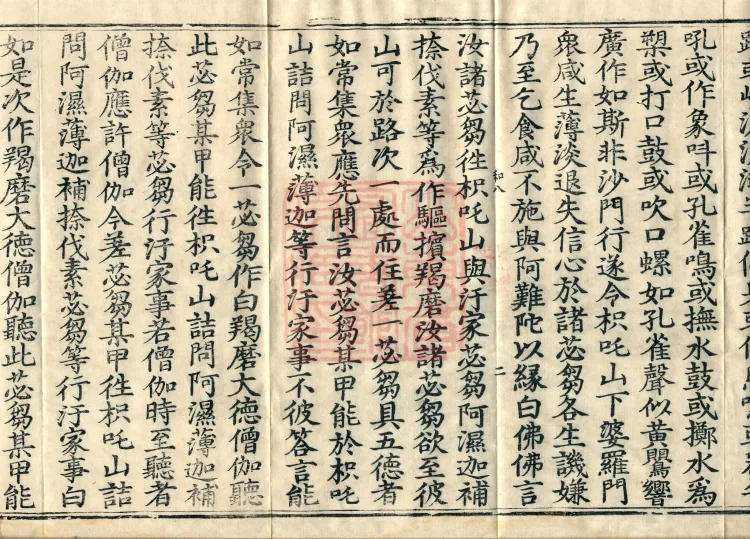 吼或作象吽或孔雀鳴或撫水鼓或擲水爲
槊或打口鼓或吹口螺如孔雀聲似黃鸎響
廣作如斯非沙門行遂令枳吒山下婆羅門
衆咸生薄淡退失信心於諸苾芻各生譏嫌
乃至乞食咸不施與阿難陀以緣白佛佛言
二
汝諸苾芻往枳吒山與汙家苾芻阿濕迦補
捺伐素等爲作驅擯羯磨汝諸苾芻欲至彼
山可於路次一處而住差一苾芻具五德者
如常集衆應先問言汝苾芻某甲能於枳吒
山詰問阿濕薄迦等行汙家事不彼答言能
如常集衆令一苾芻作白羯磨大德僧伽聽
此苾芻某甲能往枳吒山詰問阿濕薄迦補
捺伐素等苾芻行汙家事若僧伽時至聽者
僧伽應許僧伽今差苾芻某甲往枳吒山詰
問阿濕薄迦補捺伐素苾芻等行汙家事白
如是次作羯磨大德僧伽聽此苾芻某甲能